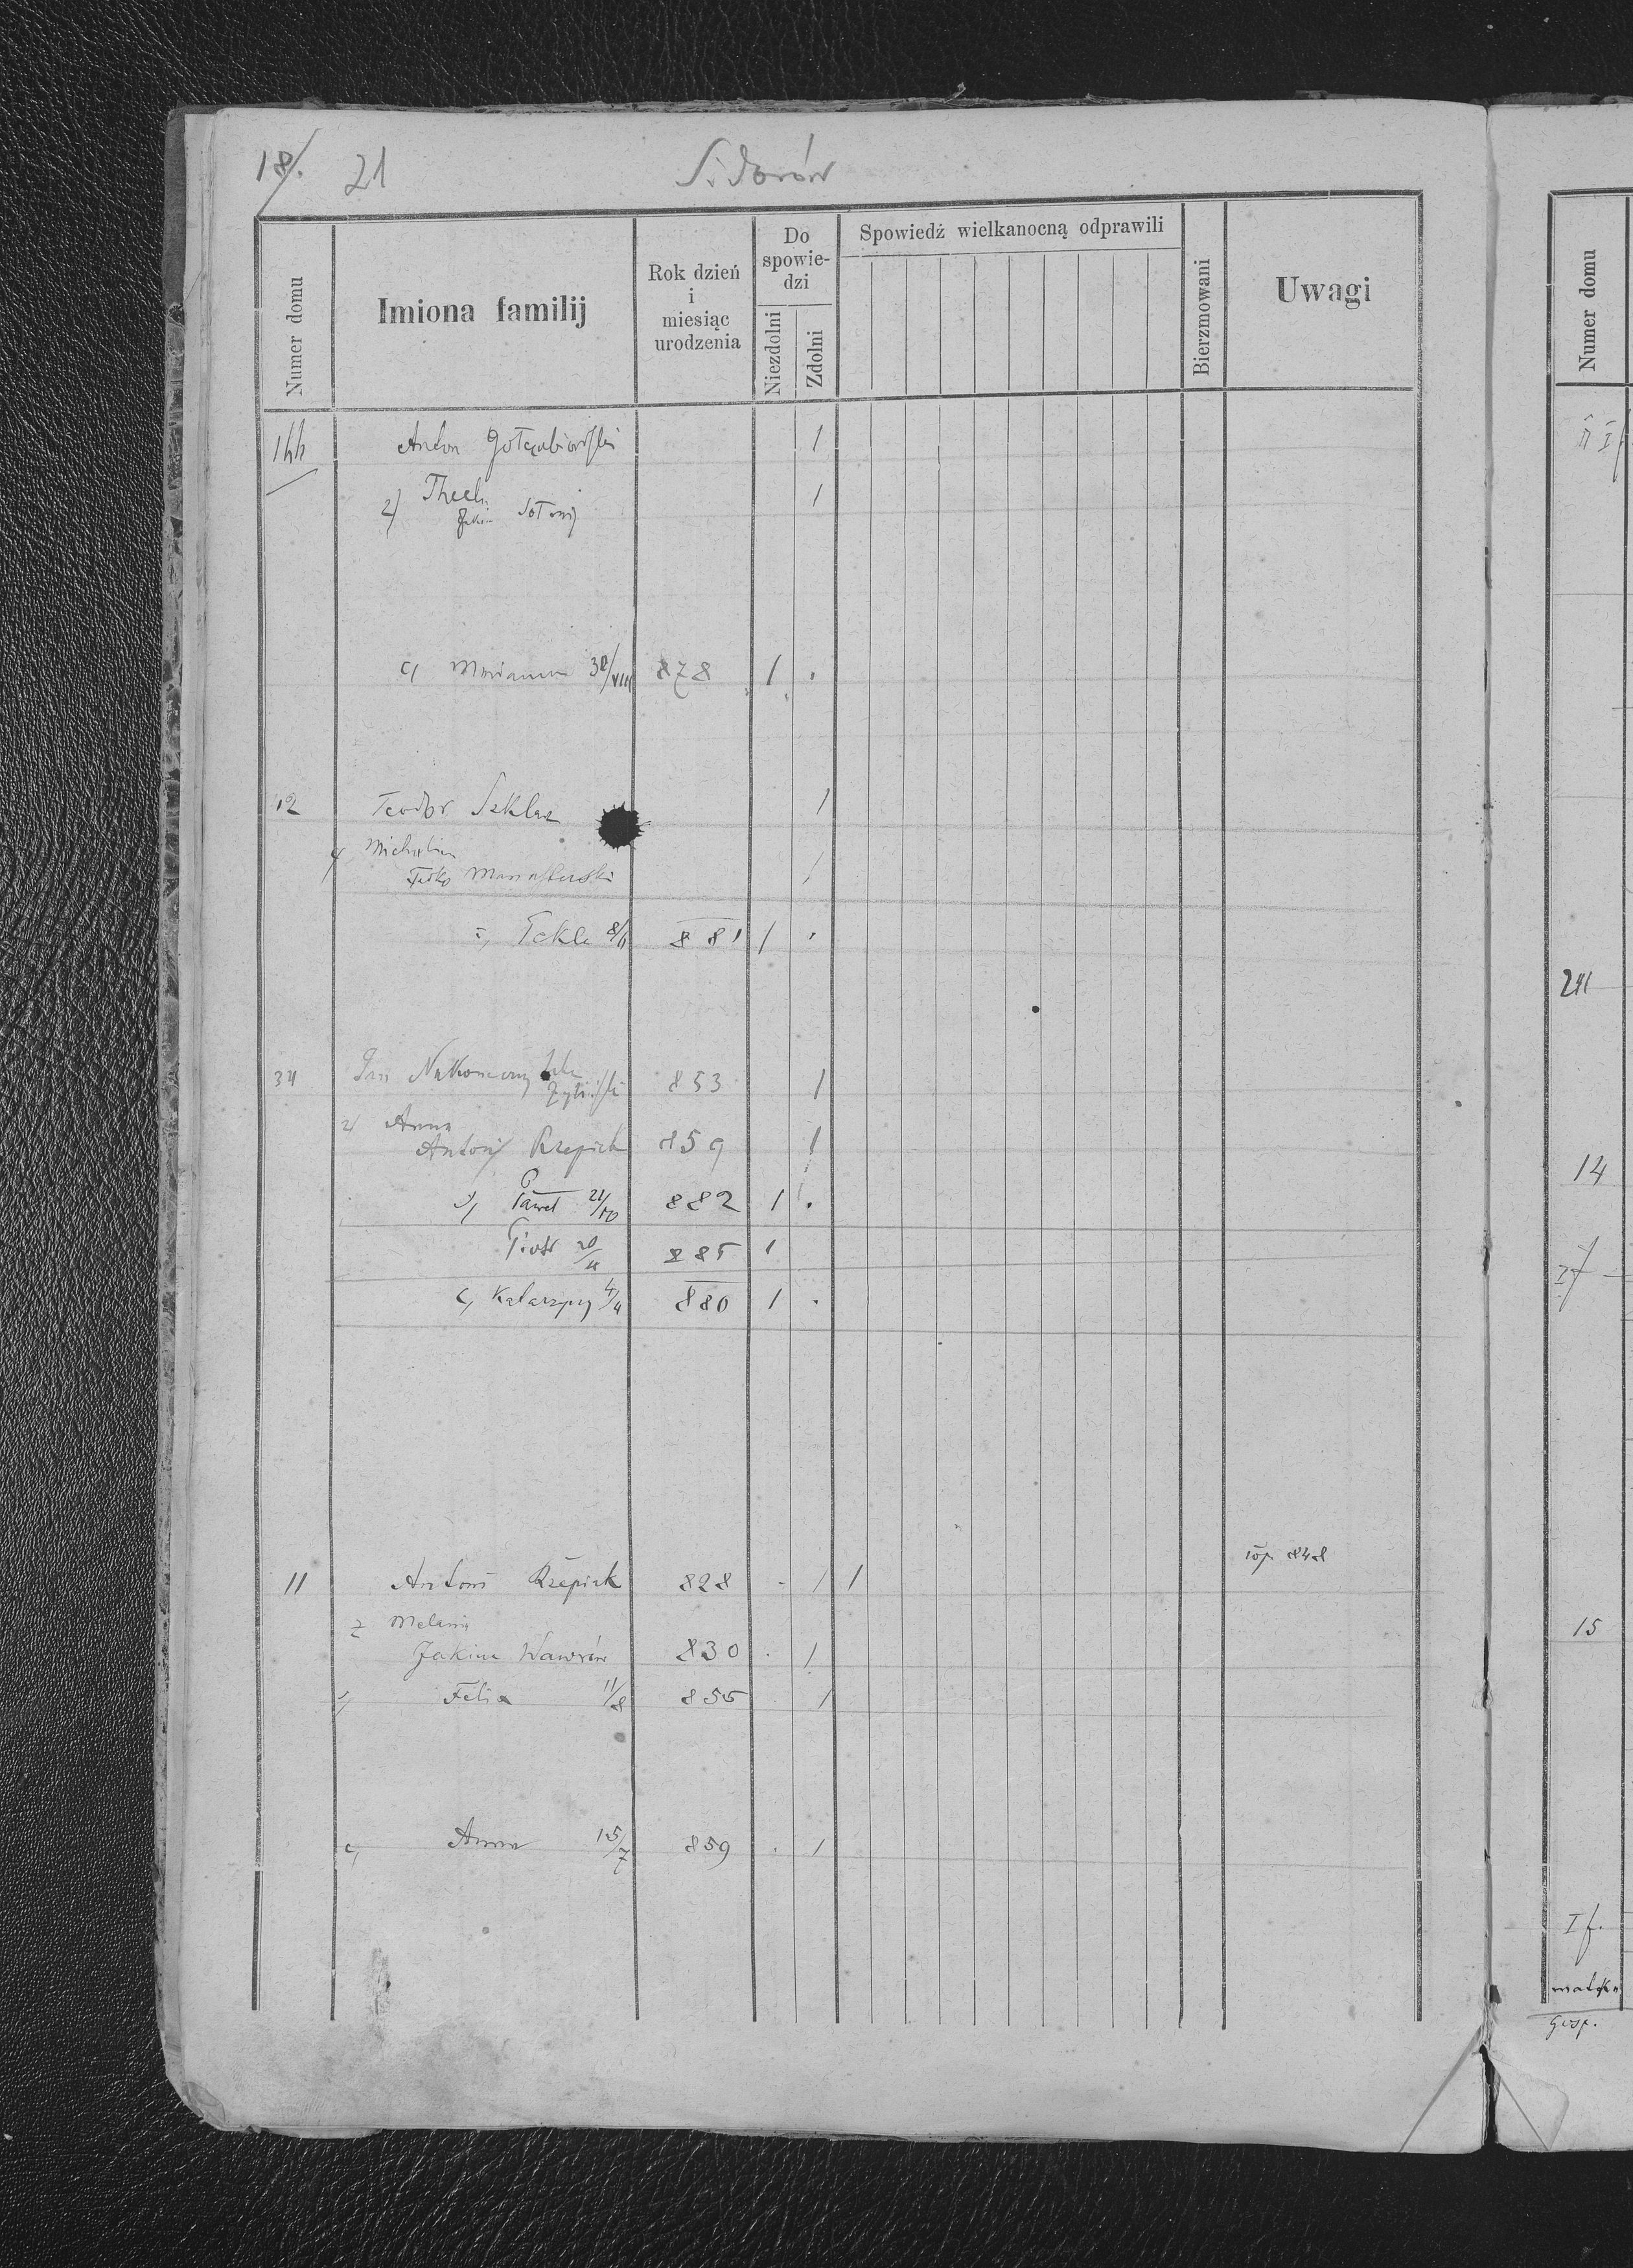 18/. 21 Sidorów
Numer domu
Imiona familij
Rok dzień
i
miesiąc
urodzenia
Do
spowie-
dzi
Niezdolni
Zdolni
Spowiedż wielkanocną odprawili
Bierzmowani
Uwagi
144 Anton Gołęabiowski 1
2) 1
c) Marianna 30/VIII 878 1 .
12 Teodor Szklarz 1
Michalina
Fedko Manasterski 1
Tekla 8/11 881 1 .
34 Jan 853 1
2) Anna
Antonij Rzepiak 859 1
Paweł 21/10 882 1 .
Piotr 20/11 885 1
c) Katarzyny 4/4 880 1 .
848
11 Antoni Rzepiak 828 . 1 1
2 Melania
Jakim Wawrów 830 . 1
Felix 11/8 855 1
c) Anna 15/7 859 . 1
Numer domu
14
If
15
If.
matka
Gosp.